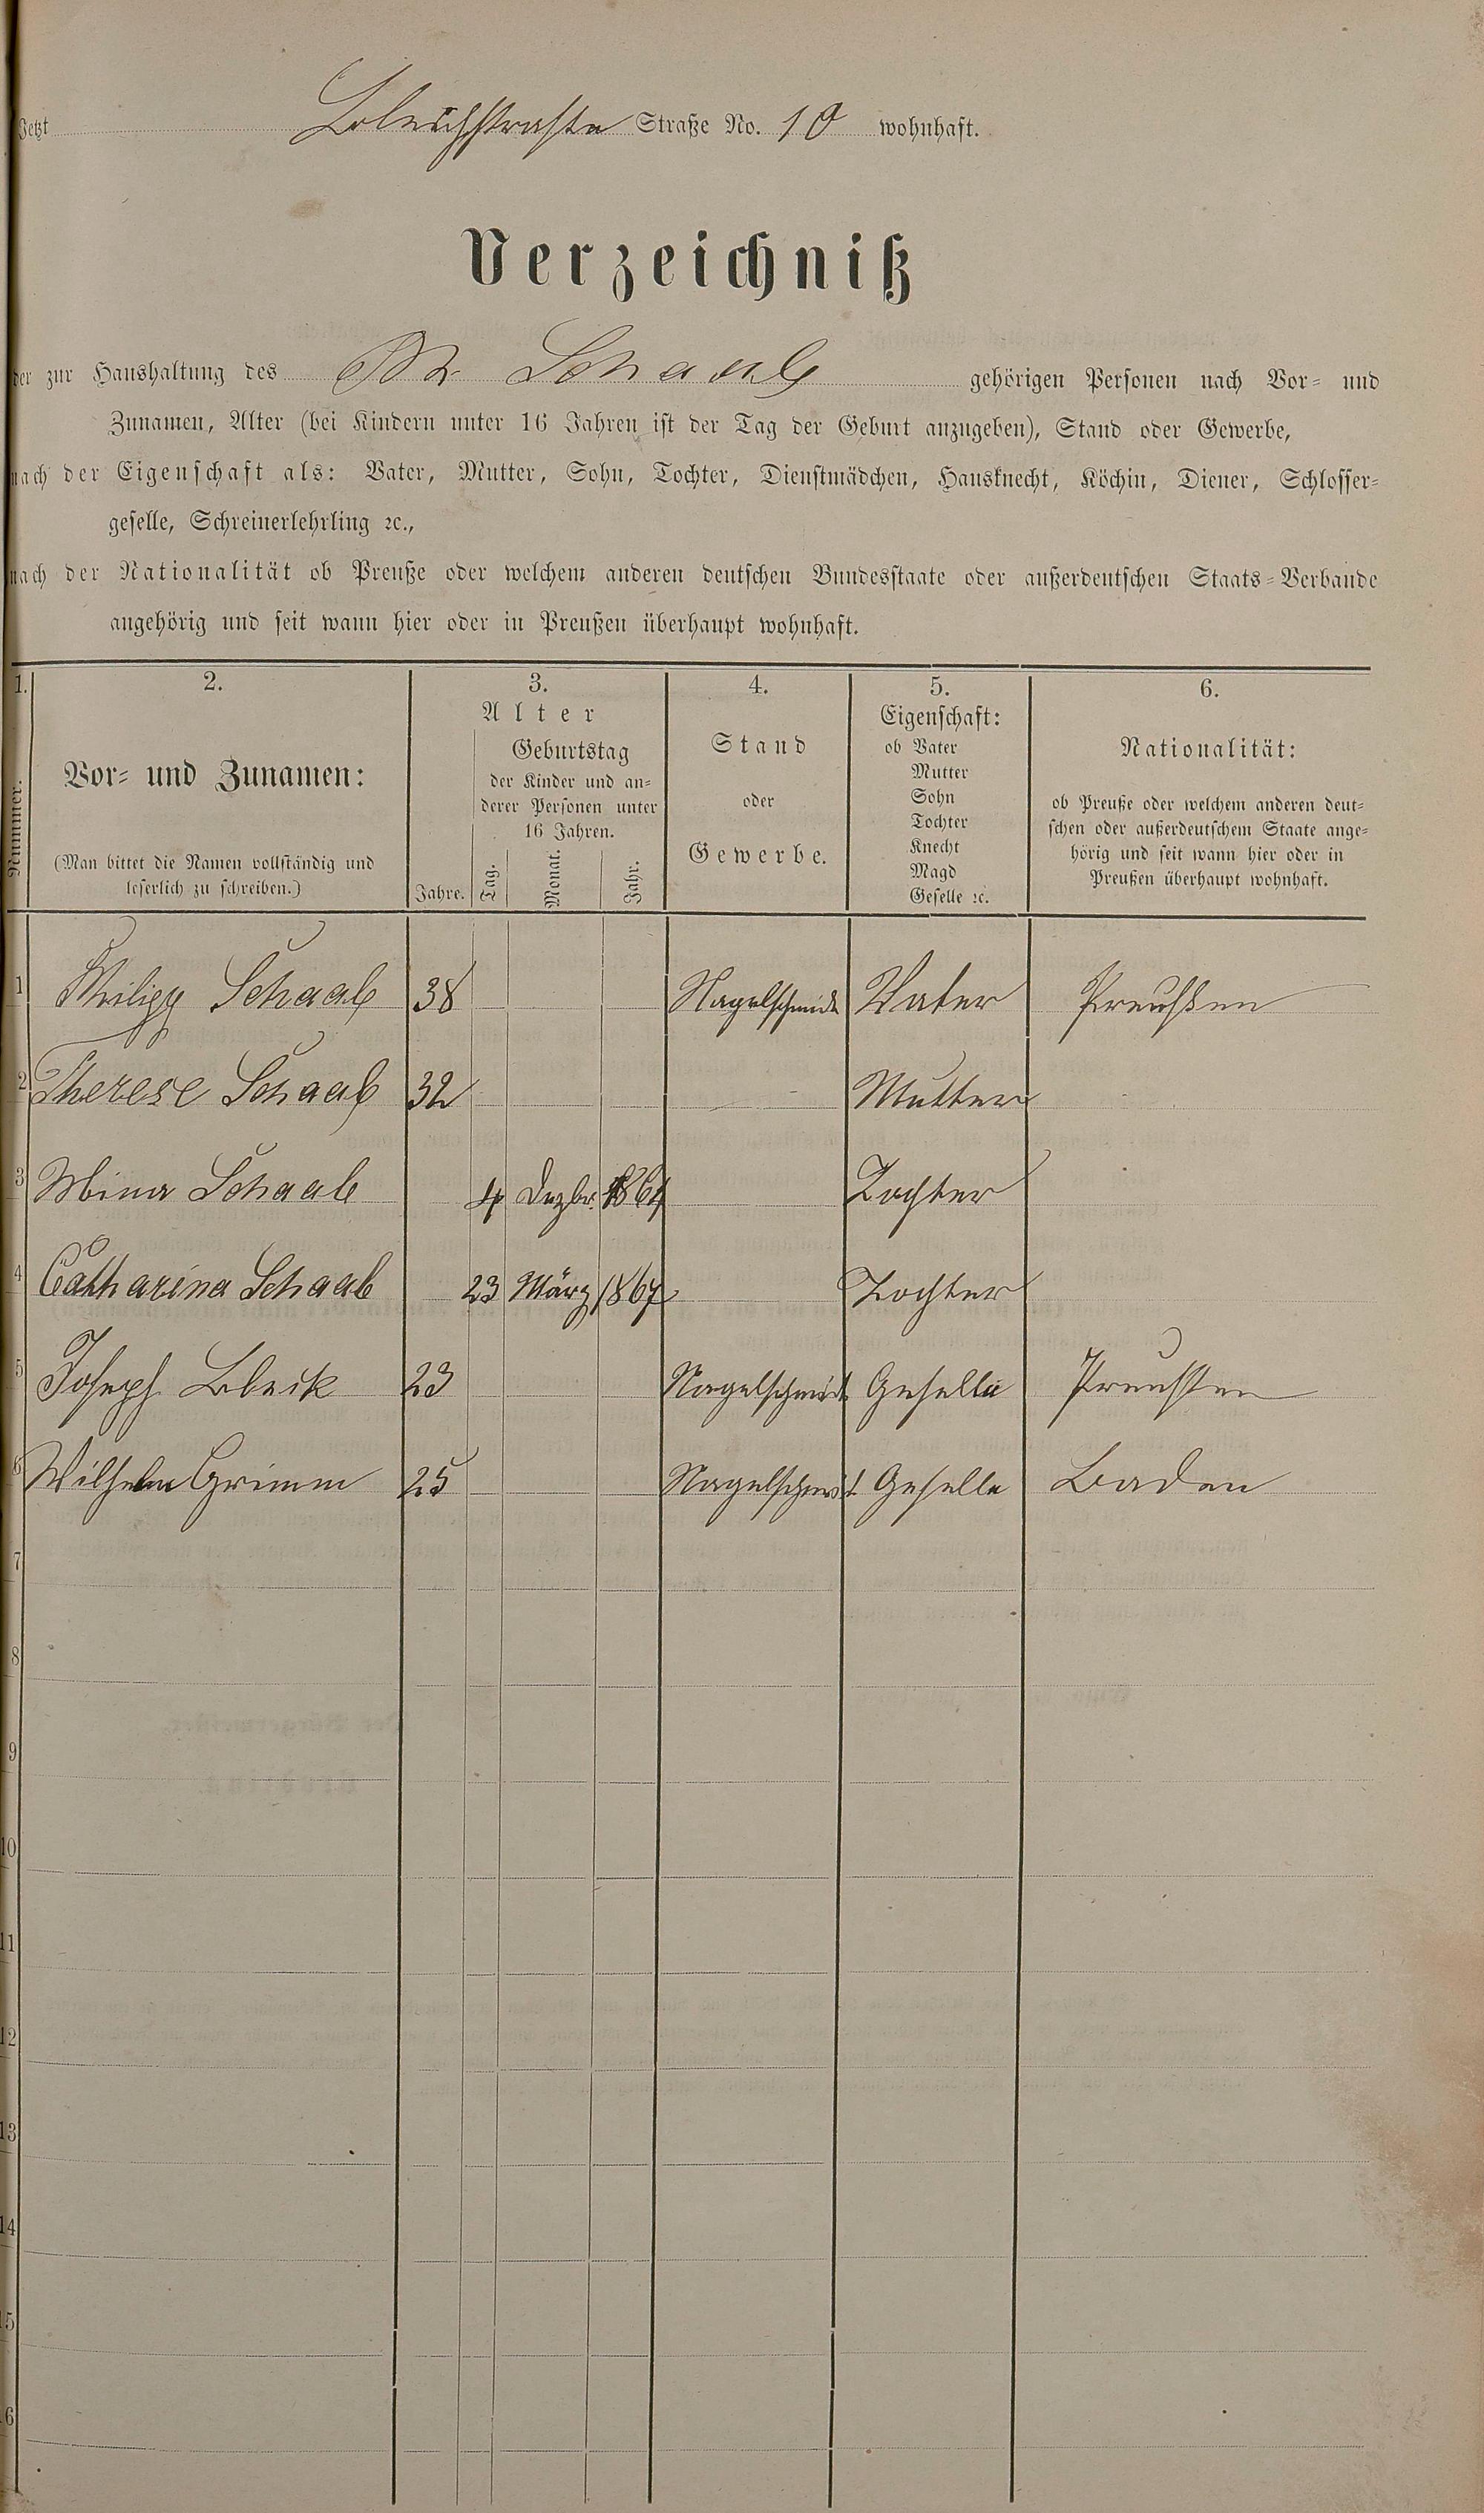 Jetzt Bleichstraße Straße No. 10 wohnhaft.
Verzeichniß
der zur Haushaltung des Ph. Schaab gehörigen Personen nach Vor- und
Zunamen, Alter (bei Kindern unter 16 Jahren ist der Tag der Geburt anzugeben), Stand oder Gewerbe,
nach der Eigenschaft als: Vater, Mutter, Sohn, Tochter, Dienstmädchen, Hausknecht, Köchin, Diener, Schlosser-
geselle, Schreinerlehrling ꝛc.,
nach der Nationalität ob Preuße oder welchem anderen deutschen Bundesstaate oder außerdeutschen Staats-Verbande
angehörig und seit wann hier oder in Preußen überhaupt wohnhaft.
1. 2. 3. 4. 5. 6.
Nummer.
Vor- und Zunamen:
(Man bittet die Namen vollständig und
leserlich zu schreiben.)
Alter
Jahre.
Geburtstag
der Kinder und an-
derer Personen unter
16 Jahren.
Tag. Monat. Jahr.
Stand
oder
Gewerbe.
Eigenschaft:
ob Vater
Mutter
Sohn
Tochter
Knecht
Magd
Geselle ꝛc.
Nationalität:
ob Preuße oder welchem anderen deut-
schen oder außerdeutschem Staate ange-
hörig und seit wann hier oder in
Preußen überhaupt wohnhaft.
1 Philipp Schaab 38 Nagelschmidt Vater Preußen
2 Therese Schaab 32 Mutter
3 Mina Schaab 4 Dezbr. 1864 Tochter
4 Catharina Schaab 23 März 1867 Tochter
5 Joseph 23 Nagelschmidt Geselle Preußen
6 Wilhelm Grimm 25 Nagelschmidt Geselle Baden
7
8
9
10
11
12
13
14
15
16